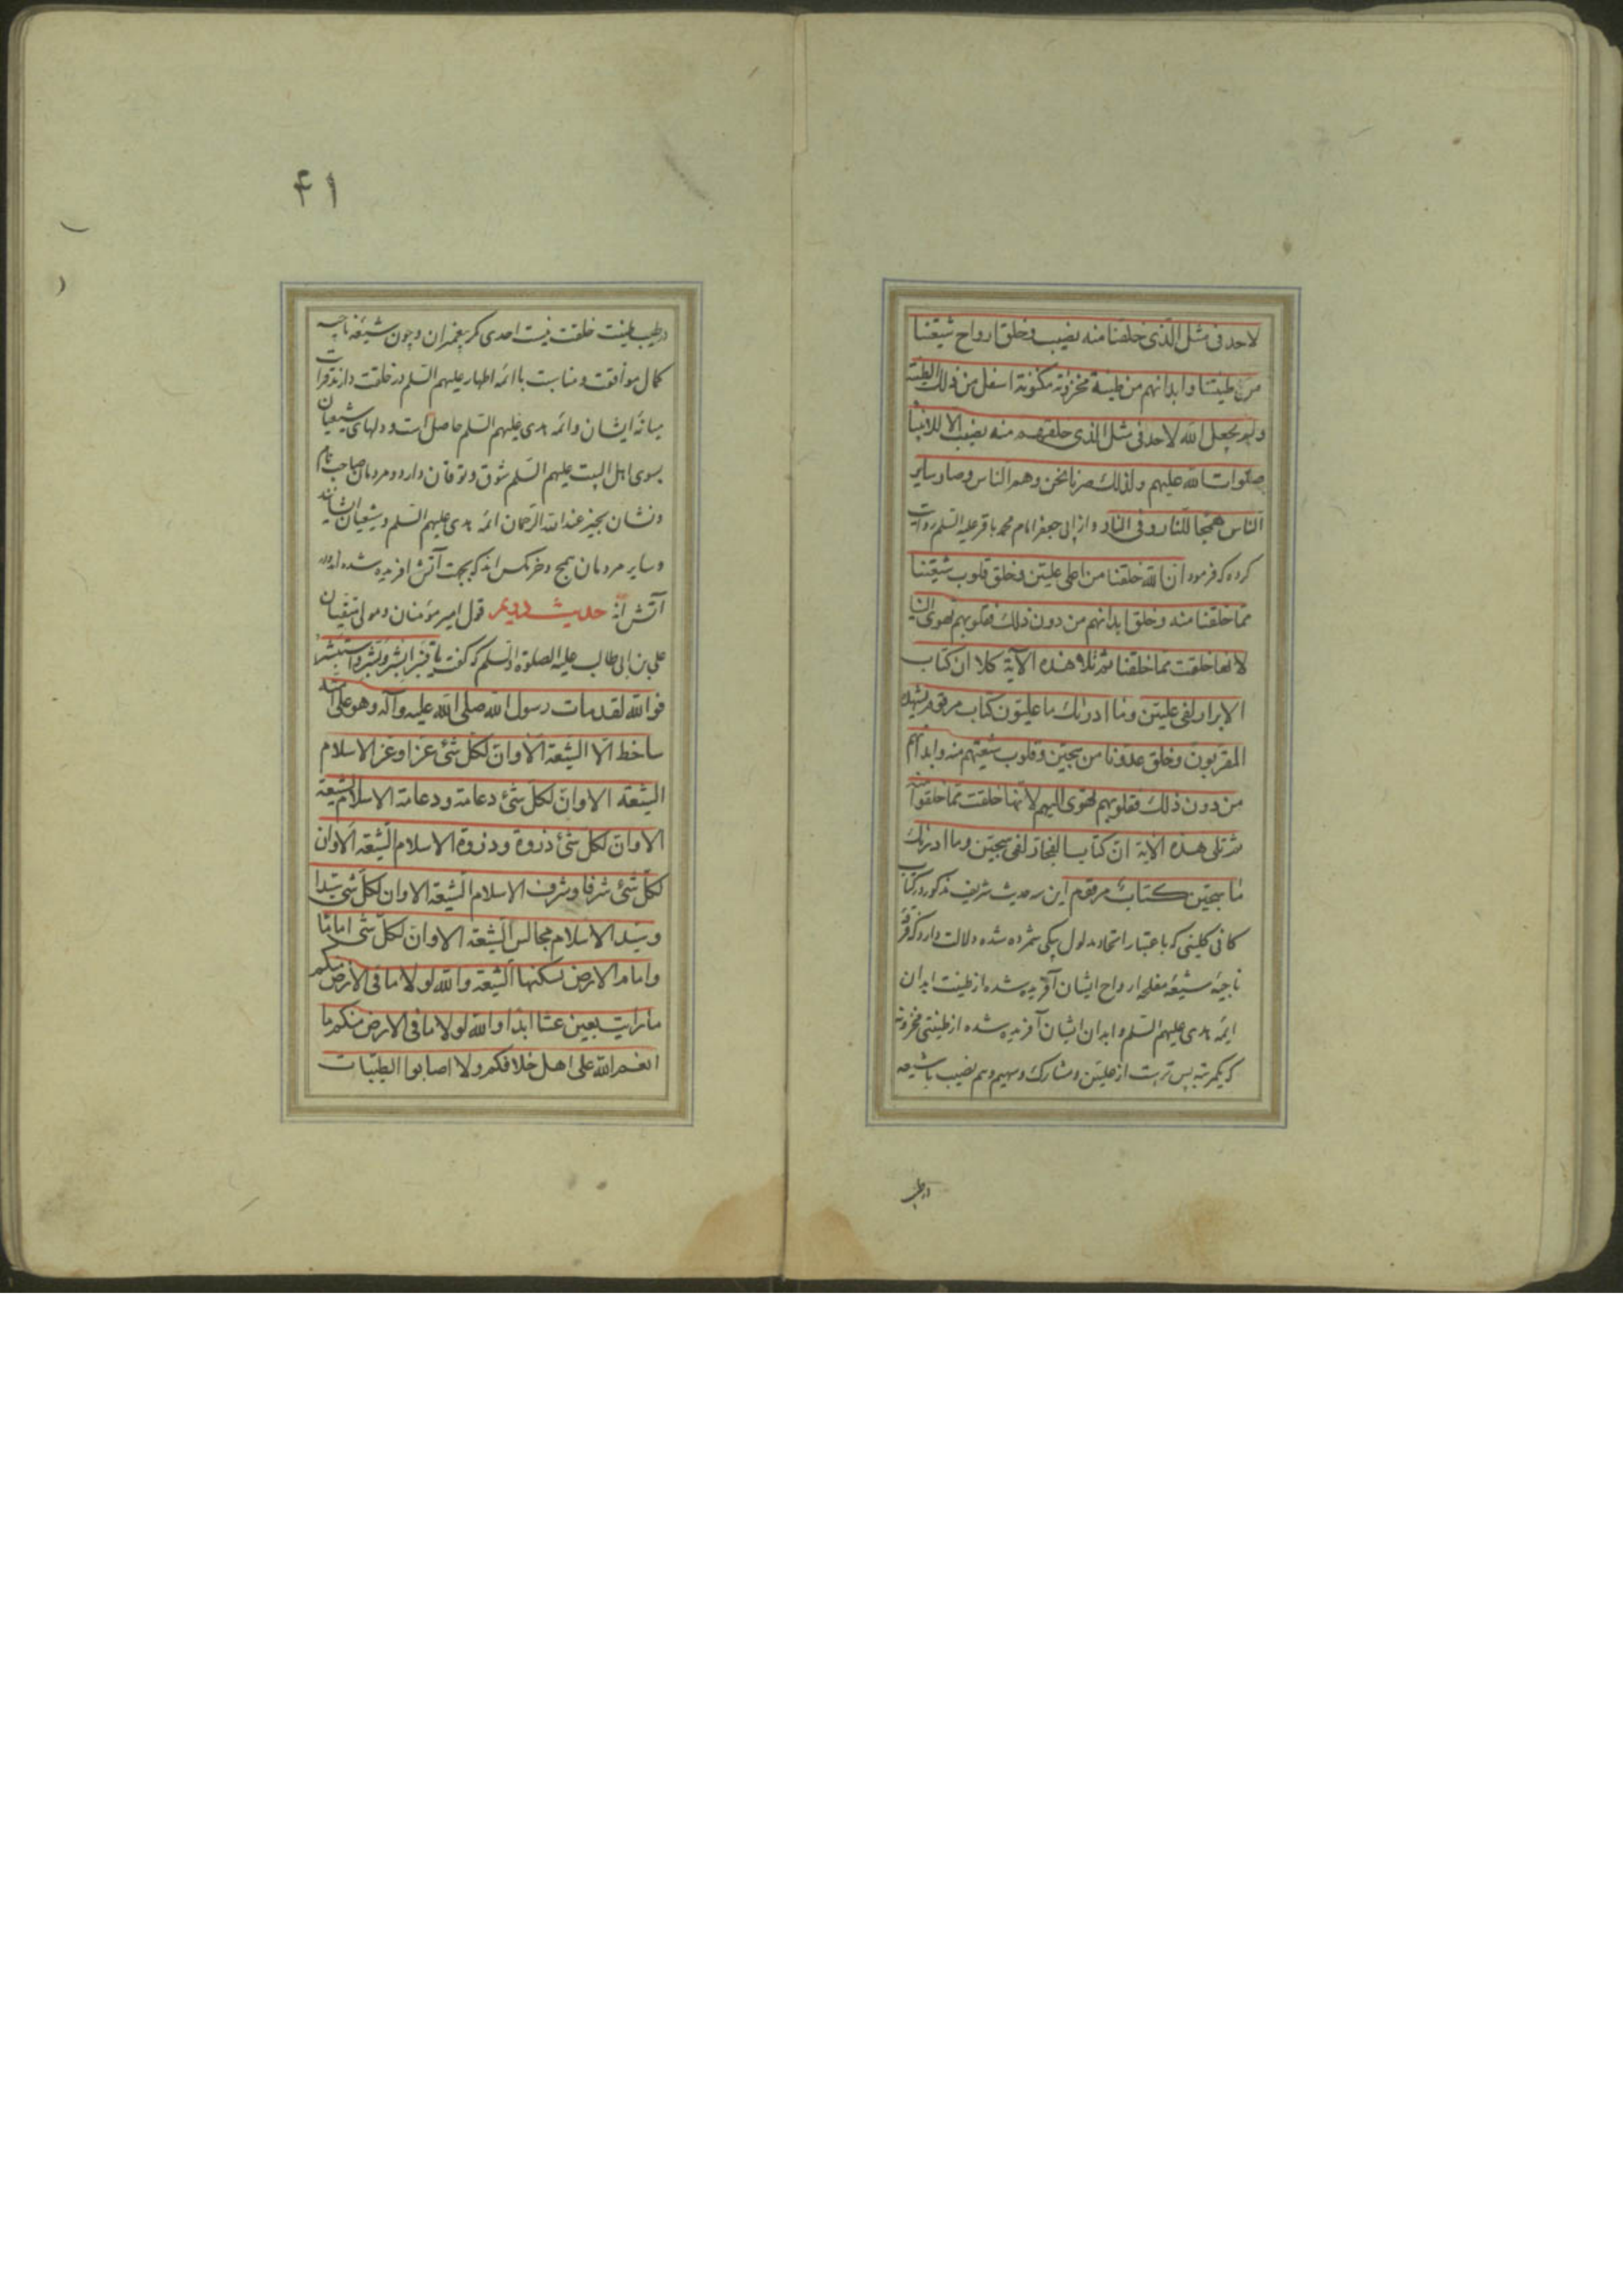 لاحد فی مثل الّذی خلقنا منه نصیب و خلق ارواح شیعتنا
من طینتنا وابدانهم من طینة مخزونة مکنونة اسفل من ذلک الطینة
ولم یجعل الله لاحد فی مثل الذی خلقهم منه نصیب الا للانبیا
صلوات الله علیهم ولذلک صرنا نحن وهم الناس وصار سایر
الناس همجا للنار وفی النار و از ابی جعفر امام محمد باقر علیه السلم روایت
کرده که فرمود ان الله خلقنا من اعلی علیّین وخلق قلوب شیعتنا
ممّا خلقنا منه وخلق ابدانهم من دون ذلک فقلوبهم تهوی الینا
لانها خلقت ممّا خلقنا ثم تلا هذه الآیة کلا ان کتاب
الابرار لفی علیّین وما ادریٰک ما علیّون کتاب مرقوم یشهده
المقربون وخلق عدوّنا من سجّین وقلوب شیعتهم منه وابدانهم
من دون ذلک فقلوبهم تهوی الیهم لانّها خلقت ممّا خلقوا منه
ثم تلی هذه الایة انّ کتاب الفجّار لفی سجّین وما ادریٰک
ما سجّین کتابٌ مرقوم این سه حدیث شریف مذکور در کتاب
کافی کلینی که باعتبار اتحاد مدلول یکی شمرده شده دلالت دارد که فرقهٔ
ناجیهٔ شیعهٔ مفلحه ارواح ایشان آفریده شده از طینت ابدان
ایمّه هدی علیهم السّلم و ابدان ایشان آفریده شده از طینتی مخزونه
که یکمرتبه پس تر است از علیّین و مشارک و سهیم و هم نصیب با شیعه
در طیب
۴۱
در طیب طینت خلقت نیست احدی مگر پیغمبران و چون شیعهٔ ناجیه
کمال موافقت و مناسبت با ائمهٔ اطهار علیهم السّلم در خلقت دارند قرابت
میانهٔ ایشان و ائمهٔ هدی علیهم السّلم حاصل است و دلهای شیعیان
بسوی اهل البیت علیهم السّلم شوق و توقان دارد و مردمان صاحب نام
و نشان بجیز عند الله الرّحمان ائمهٔ هدی علیهم السّلم و شیعیان ایشانند
و سایر مردمان همج و خرمگس اند که بجهت آتش افریده شده اند و در
آتش اند حدیث دویم قول امیر مؤمنان و مولی متقیان
علی بن ابی طالب علیه الصلوة والسّلم که گفت یا قنبر ابشر وبشّر واستبشر
فوالله لقد مات رسول الله صلی الله علیه وآله وهو علی امته
ساخط الّا الشّیعة الا وانّ لکل شئ عزا وعز الاسلام
الشیعة الا وانّ لکل شئ دعامة ودعامة الاسلام الشیعة
الا وانّ لکل شئ ذروة وذروة الاسلام الشیعة الا وان
لکلّ شئ شرفا وشرف الاسلام الشیعة الا وان لکلّ شئ سیّدا
وسیّد الاسلام مجالس الشیعة الا وانّ لکلّ شی اماما
وامام الارض تسکنها الشیعة والله لولا ما فی الارض منکم
ما رایت بعین عشبا ابدا والله لولا ما فی الارض منکم ما
انعم الله علی اهل خلافکم ولا اصابوا الطیّبات